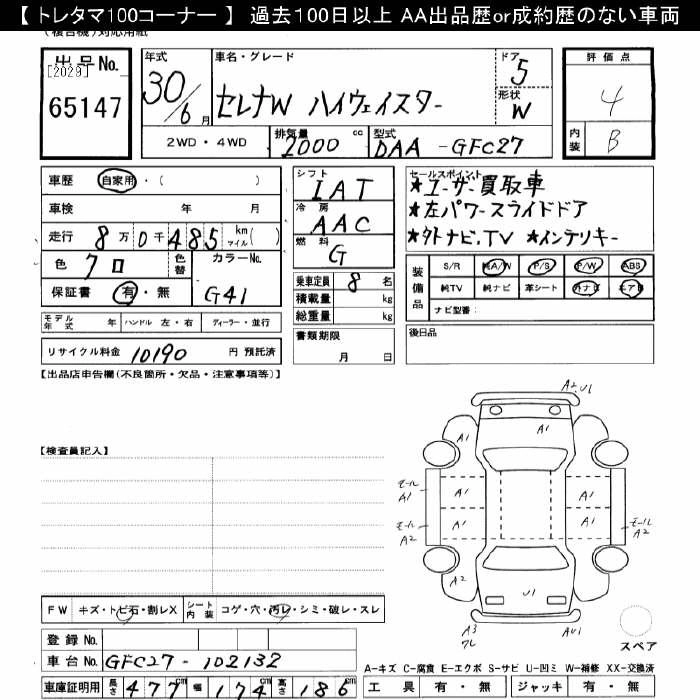 【 トレタマ100コーナー 】 過去100日以上 AA出品歴or成約歴のない車両
(複合機)対応用紙
出品No.
[2029]
65147
年式
30/6 月
車名・グレード
セレナW ハイウェイスター
ドア
5
形状
W
2WD・4WD
排気量
2000 cc
型式
DAA -GFC27
評価点
4
内装
B
車歴 自家用・( )
車検 年 月
走行 8万0千485 km マイル( )
色 クロ
色替
カラーNo.
G41
保証書 有・無
モデル年式 年 ハンドル 左・右 ディーラー・並行
リサイクル料金 10190 円 預託済
シフト
IAT
冷房
AAC
燃料
G
乗車定員 8 名
積載量 kg
総重量 kg
書類期限
月 日
セールスポイント
★ユーザー買取車
★左パワースライドドア
★外ナビ.TV ★インテリキー
装備品
S/R 純A/W P/S P/W ABS
純TV 純ナビ 革シート 外ナビ エアB
ナビ型番:
後日品
【出品店申告欄(不良箇所・欠品・注意事項等)】
【検査員記入】
A2 U1
A1
A1
A1
モール
A1
A1
A1
モール
A2
A1
A1
モール
A2
A2
A2
U1
A3
ワレ
AU1
スペア
FW キズ・トビ石・割レX
シート内装 コゲ・穴・汚レ・シミ・破レ・スレ
登録No.
車台No. GFC27-102132
車庫証明用 長さ 477 cm 幅 174 cm 高さ 186 cm
A-キズ C-腐食 E-エクボ S-サビ U-凹ミ W-補修 XX-交換済
工具 有・無 ジャッキ 有・無